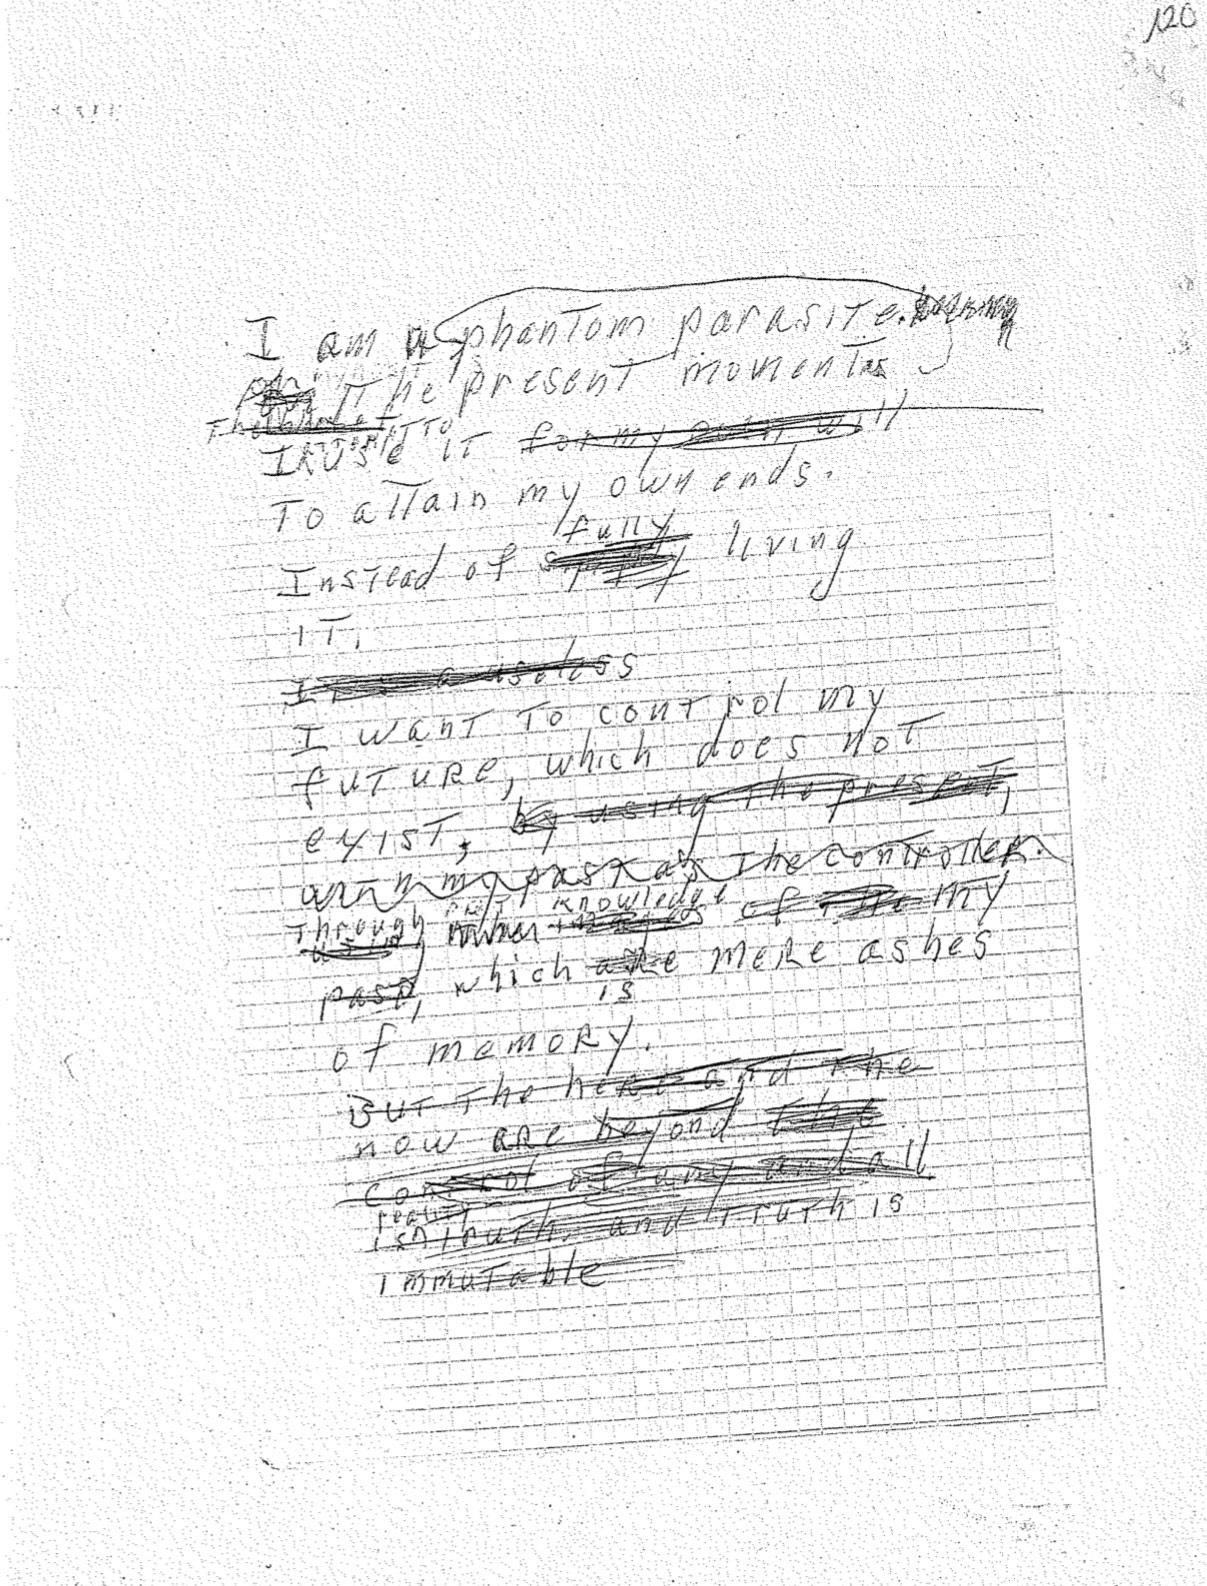 120
I am a phantom parasite.
on the present moment
I attempt to
use it for my will
To attain my own ends.
fully
Instead of living
it.
I useless
I want to control my
future, which does not
exist, by using the present,
my past as the controller.
Through my knowledge of my
past, which are mere ashes
is
of memory.
But the here and the
now are beyond the
control of any and all
reality
is truth, and truth is
immutable